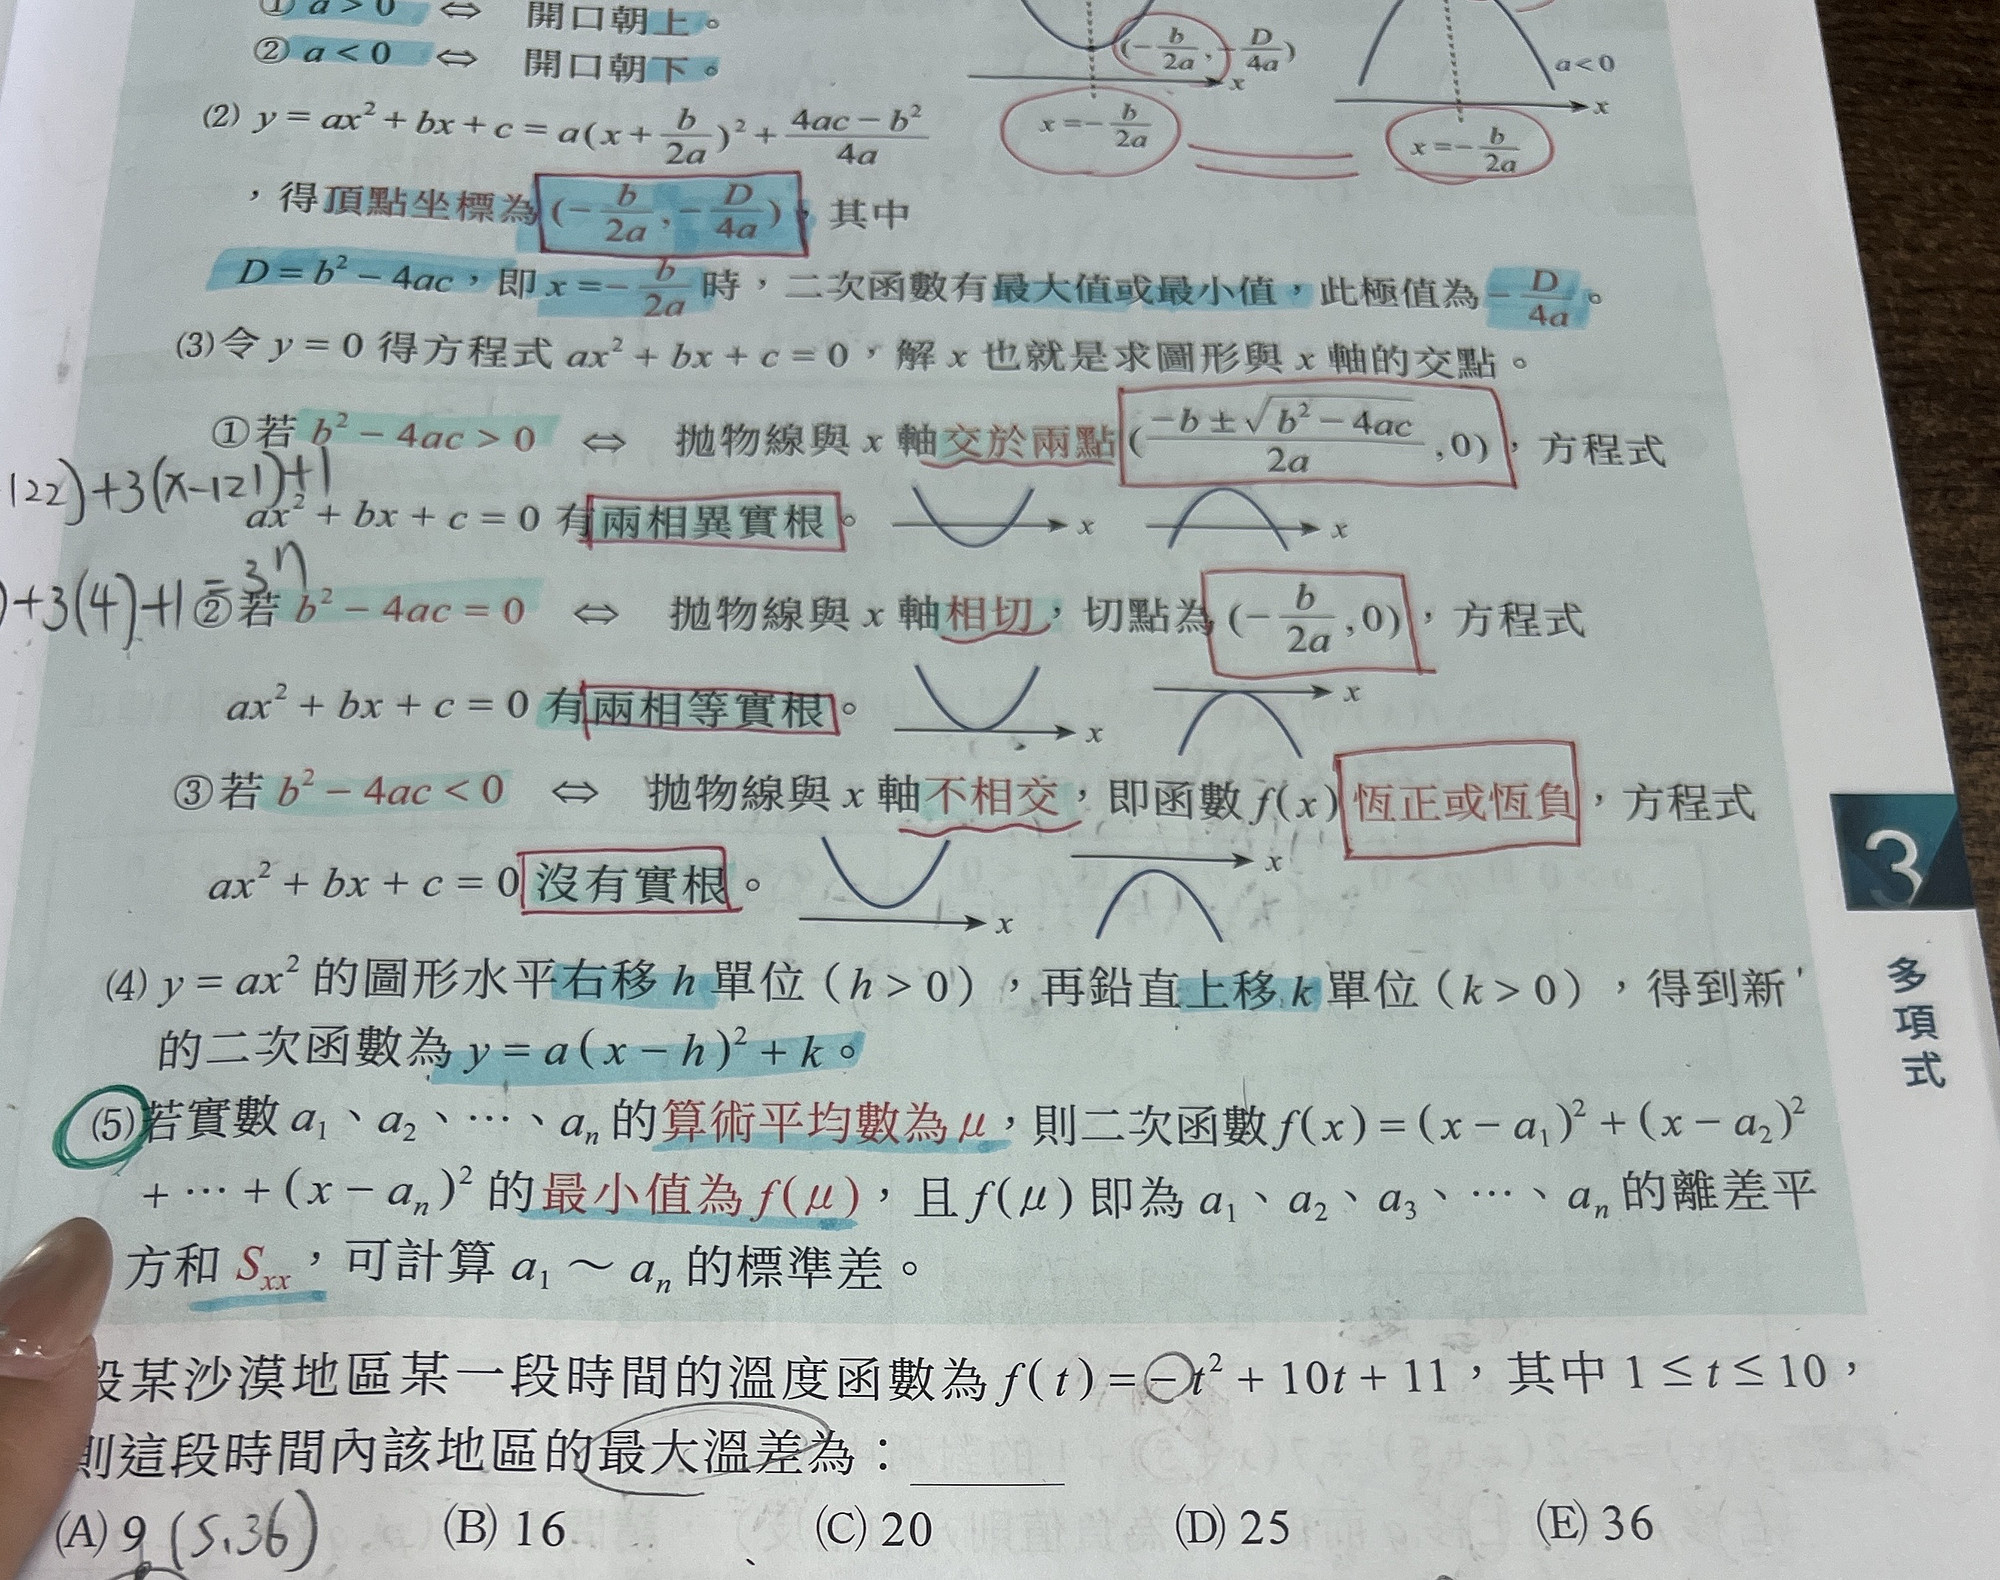 ① a > 0 ⇔ 開口朝上。
② a < 0 ⇔ 開口朝下。
(-b/2a, -D/4a)
x
x = -b/2a
a < 0
x
x = -b/2a
(2) y = ax² + bx + c = a(x + b/2a)² + (4ac - b²)/4a
，得頂點坐標為(-b/2a, -D/4a)，其中
D = b² - 4ac，即 x = -b/2a 時，二次函數有最大值或最小值，此極值為 -D/4a。
(3)令 y = 0 得方程式 ax² + bx + c = 0，解 x 也就是求圖形與 x 軸的交點。
①若 b² - 4ac > 0 ⇔ 拋物線與 x 軸交於兩點((-b ± √(b² - 4ac))/2a , 0)，方程式
122)+3(x-121)+1
ax² + bx + c = 0 有兩相異實根。 x x
)+3(4)+1=3n
②若 b² - 4ac = 0 ⇔ 拋物線與 x 軸相切，切點為(-b/2a , 0)，方程式
ax² + bx + c = 0 有兩相等實根。 x x
③若 b² - 4ac < 0 ⇔ 拋物線與 x 軸不相交，即函數 f(x) 恆正或恆負，方程式
ax² + bx + c = 0 沒有實根。 x x
3
多項式
(4) y = ax² 的圖形水平右移 h 單位（h > 0），再鉛直上移 k 單位（k > 0），得到新
的二次函數為 y = a(x - h)² + k。
(5)若實數 a₁、a₂、⋯、aₙ 的算術平均數為 μ，則二次函數 f(x) = (x - a₁)² + (x - a₂)²
+ ⋯ + (x - aₙ)² 的最小值為 f(μ)，且 f(μ) 即為 a₁、a₂、a₃、⋯、aₙ 的離差平
方和 Sₓₓ，可計算 a₁～aₙ 的標準差。
設某沙漠地區某一段時間的溫度函數為 f(t) = -t² + 10t + 11，其中 1 ≤ t ≤ 10，
則這段時間內該地區的最大溫差為：
(A) 9 (5,36) (B) 16 (C) 20 (D) 25 (E) 36